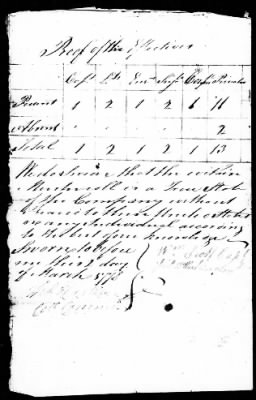 Proof of the Effectives
Capt Lts Ens Serjts Corpls Privates
Present 1 2 1 2 1 11
Absent 2
Total 1 2 1 2 1 13
We do swear that the within
Muster roll is a True State
of the Company without
Fraud to these United States
or any individual according
to the best of our knowledge
Sworn before
me this 2 day
of March 1778
Wm Scott Capt